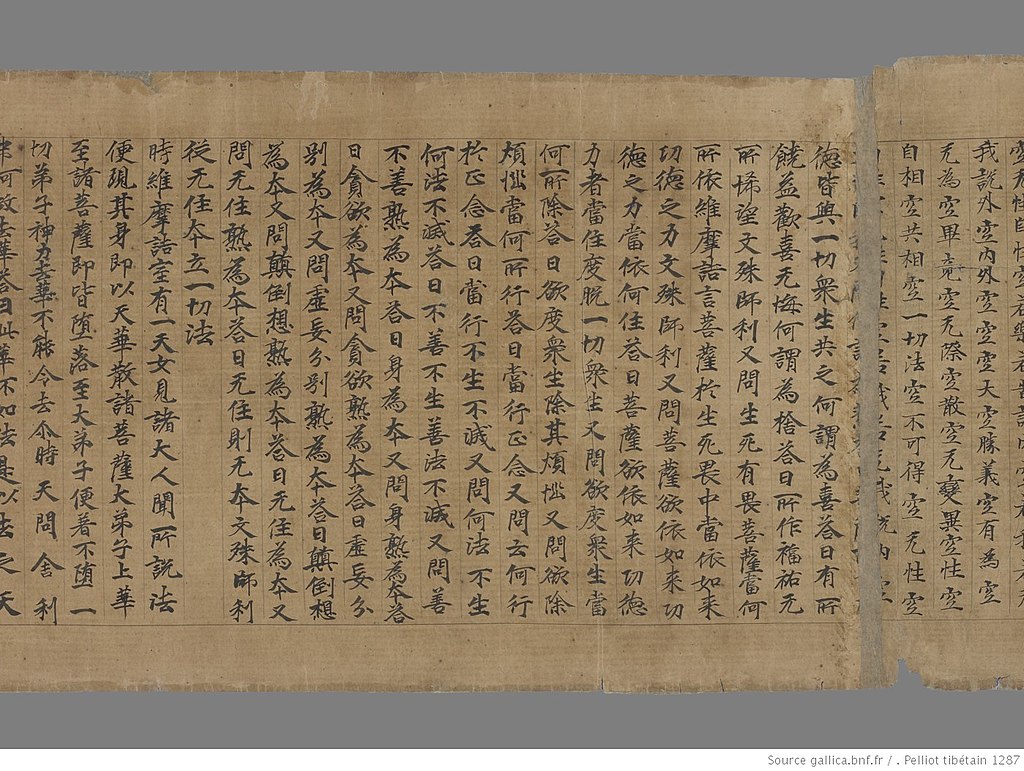 我説外空内外空空空天空勝義空有為空
无為空畢竟空无際空散空无變異空性空
自相空共相空一切法空不可得空无性空
德皆與一切衆生共之何謂為喜荅曰有所
饒益歡喜无悔何謂為捨荅曰所作福祐无
所悕望文殊師利又問生死有畏菩薩當何
所依維摩詰言菩薩於生死畏中當依如来
功德之力文殊師利又問菩薩欲依如来功
德之力當依何住荅曰菩薩欲依如来功德
力者當住度脱一切衆生又問欲度衆生當
何所除荅曰欲度衆生除其煩惱又問欲除
煩惱當何所行荅曰當行正念又問云何行
於正念荅曰當行不生不滅又問何法不生
何法不滅荅曰不善不生善法不滅又問善
不善熟為本荅曰身為本又問身熟為本荅
曰貪欲為本又問貪欲熟為本荅曰虚妄分
別為本又問虚妄分別熟為本荅曰顛倒想
為本又問顛倒想熟為本荅曰无住為本又
問无住熟為本荅曰无住則无本文殊師利
從无住本立一切法
時維摩詰室有一天女見諸大人聞所説法
便現其身即以天華散諸菩薩大弟子上華
至諸菩薩即皆墮落至大弟子便著不墮一
切弟子神力去華不能令去尒時天問舍利
弗何故去華荅曰此華不如法是以去之天
Source gallica.bnf.fr / . Pelliot tibétain 1287